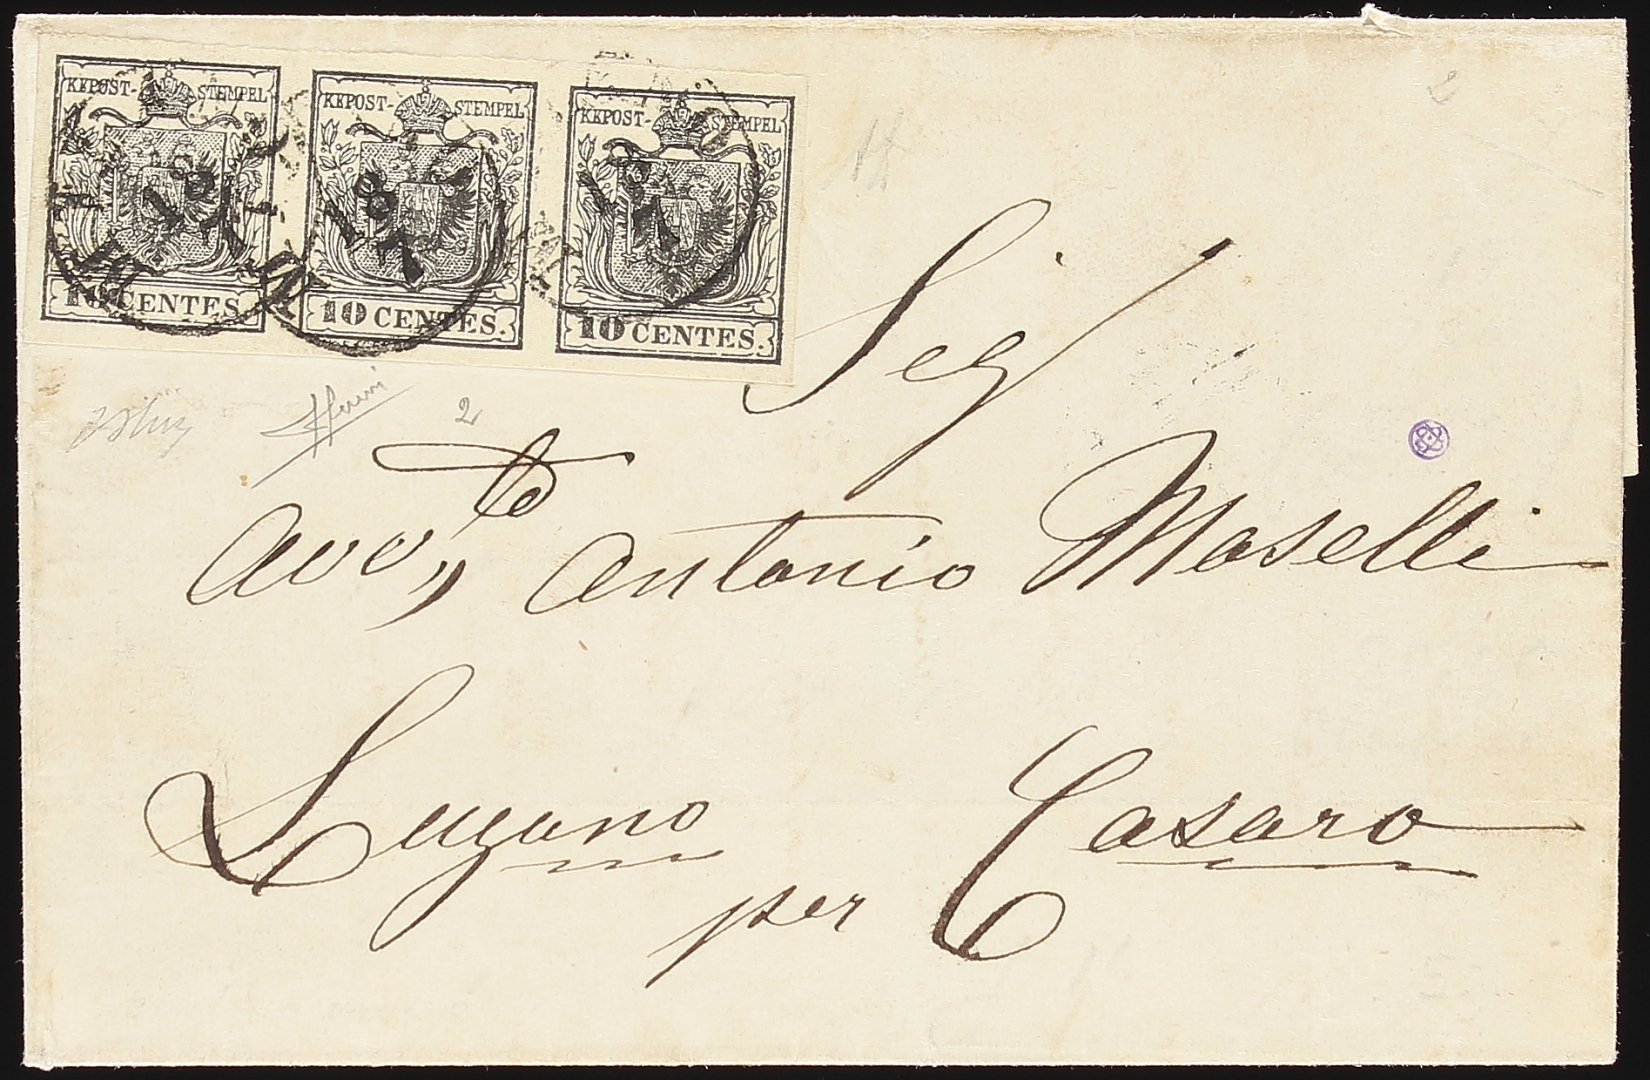 KKPOST-STEMPEL KKPOST-STEMPEL KKPOST-STEMPEL
10 CENTES. 10 CENTES. 10 CENTES.
2
2
Sigʳ
Avv,,ᵗᵒ Antonio Maselli
Lugano
per Casaro